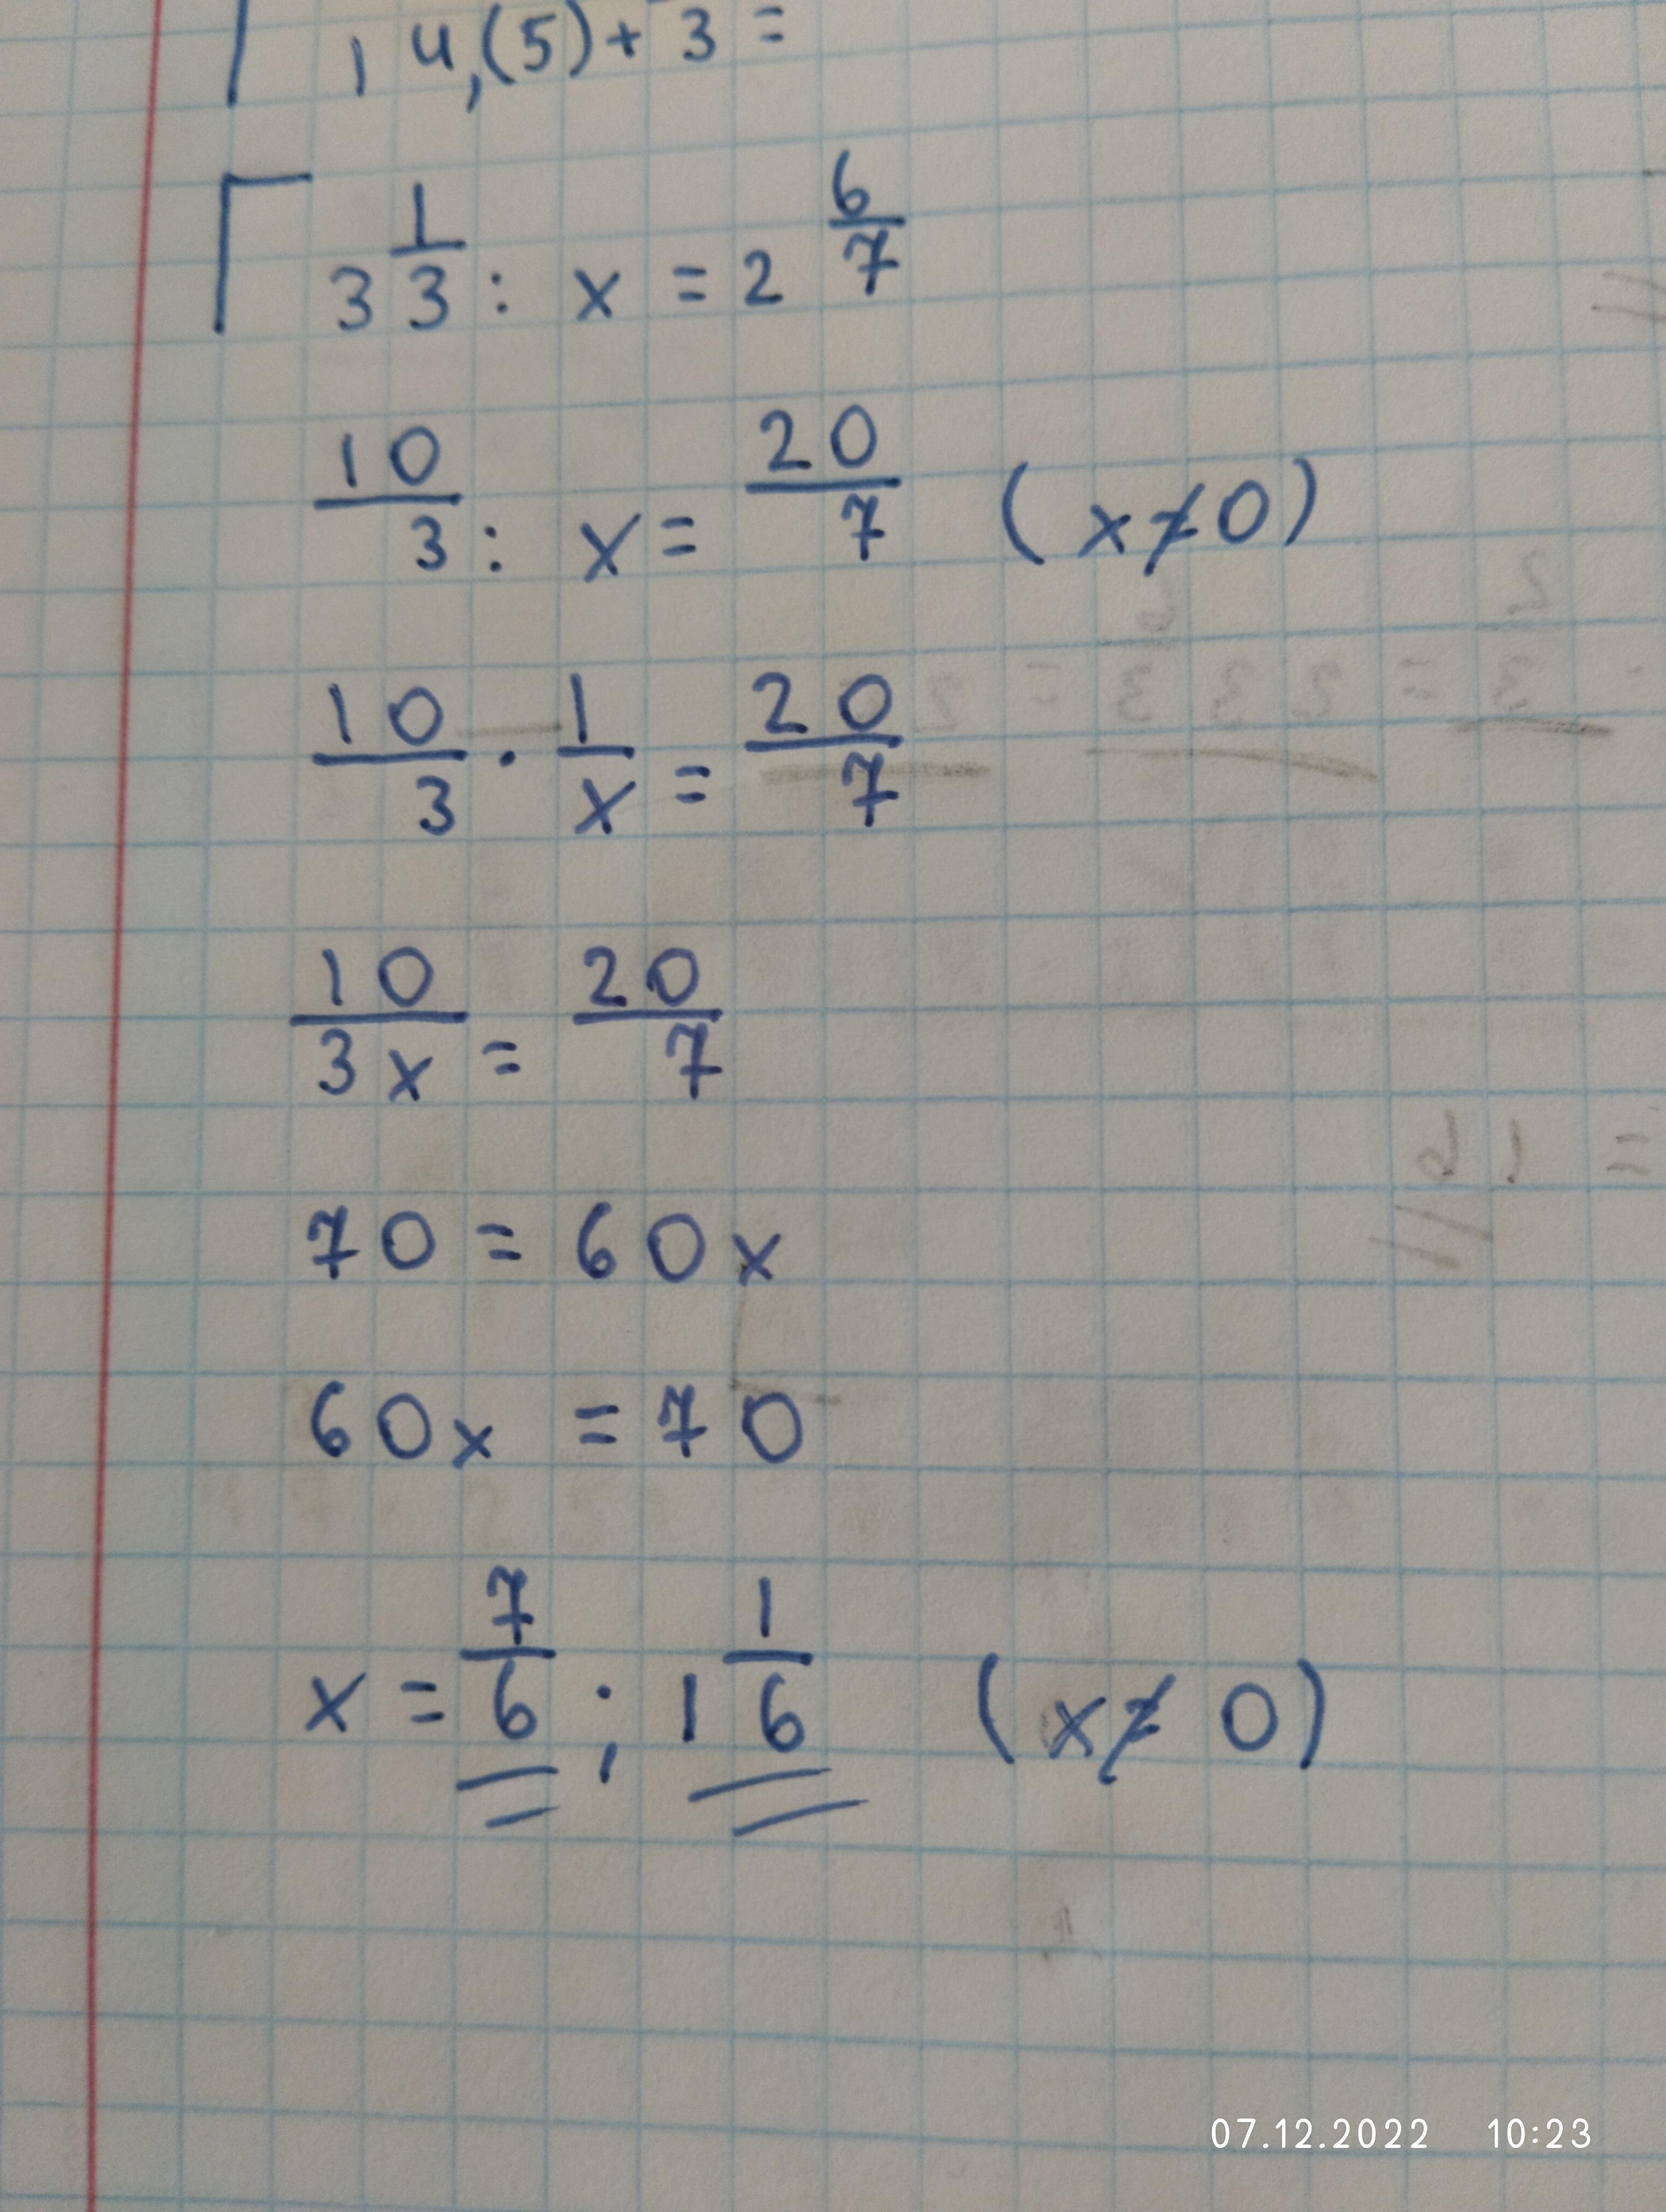 14,(5)+3=
3 1/3 : x = 2 6/7
10/3 : x = 20/7 (x≠0)
10/3 · 1/x = 20/7
10/3x = 20/7
70 = 60x
60x = 70
x = 7/6 ; 1 1/6 (x≠0)
07.12.2022 10:23